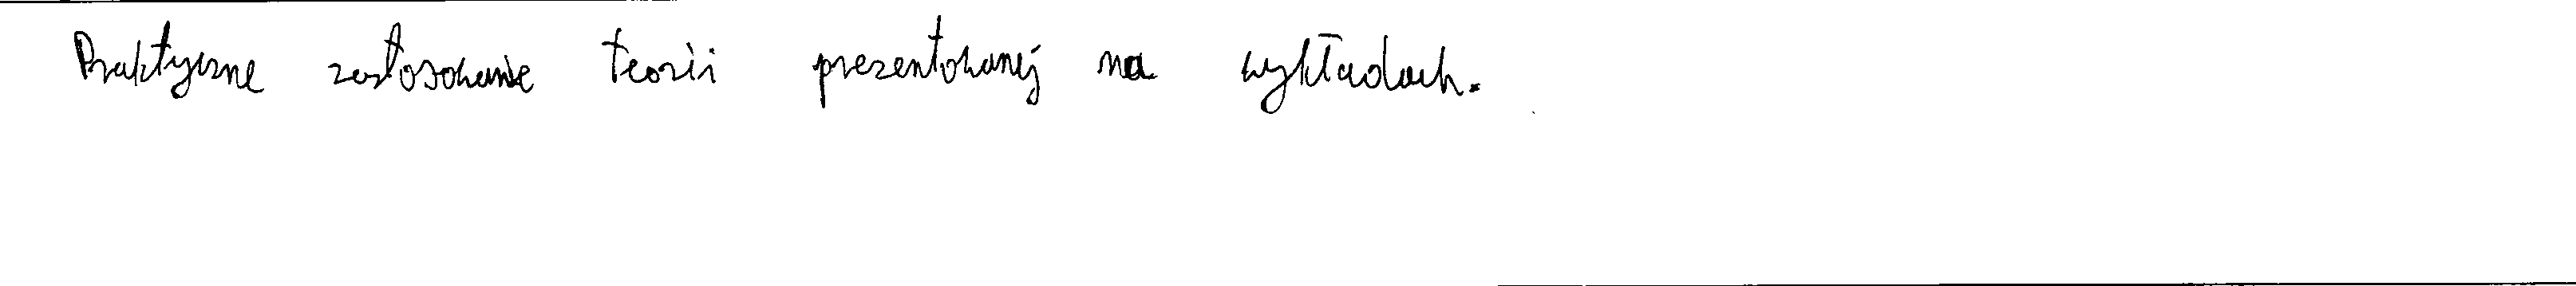 Praktyczne zastosowanie teorii prezentowanej na wykładach.